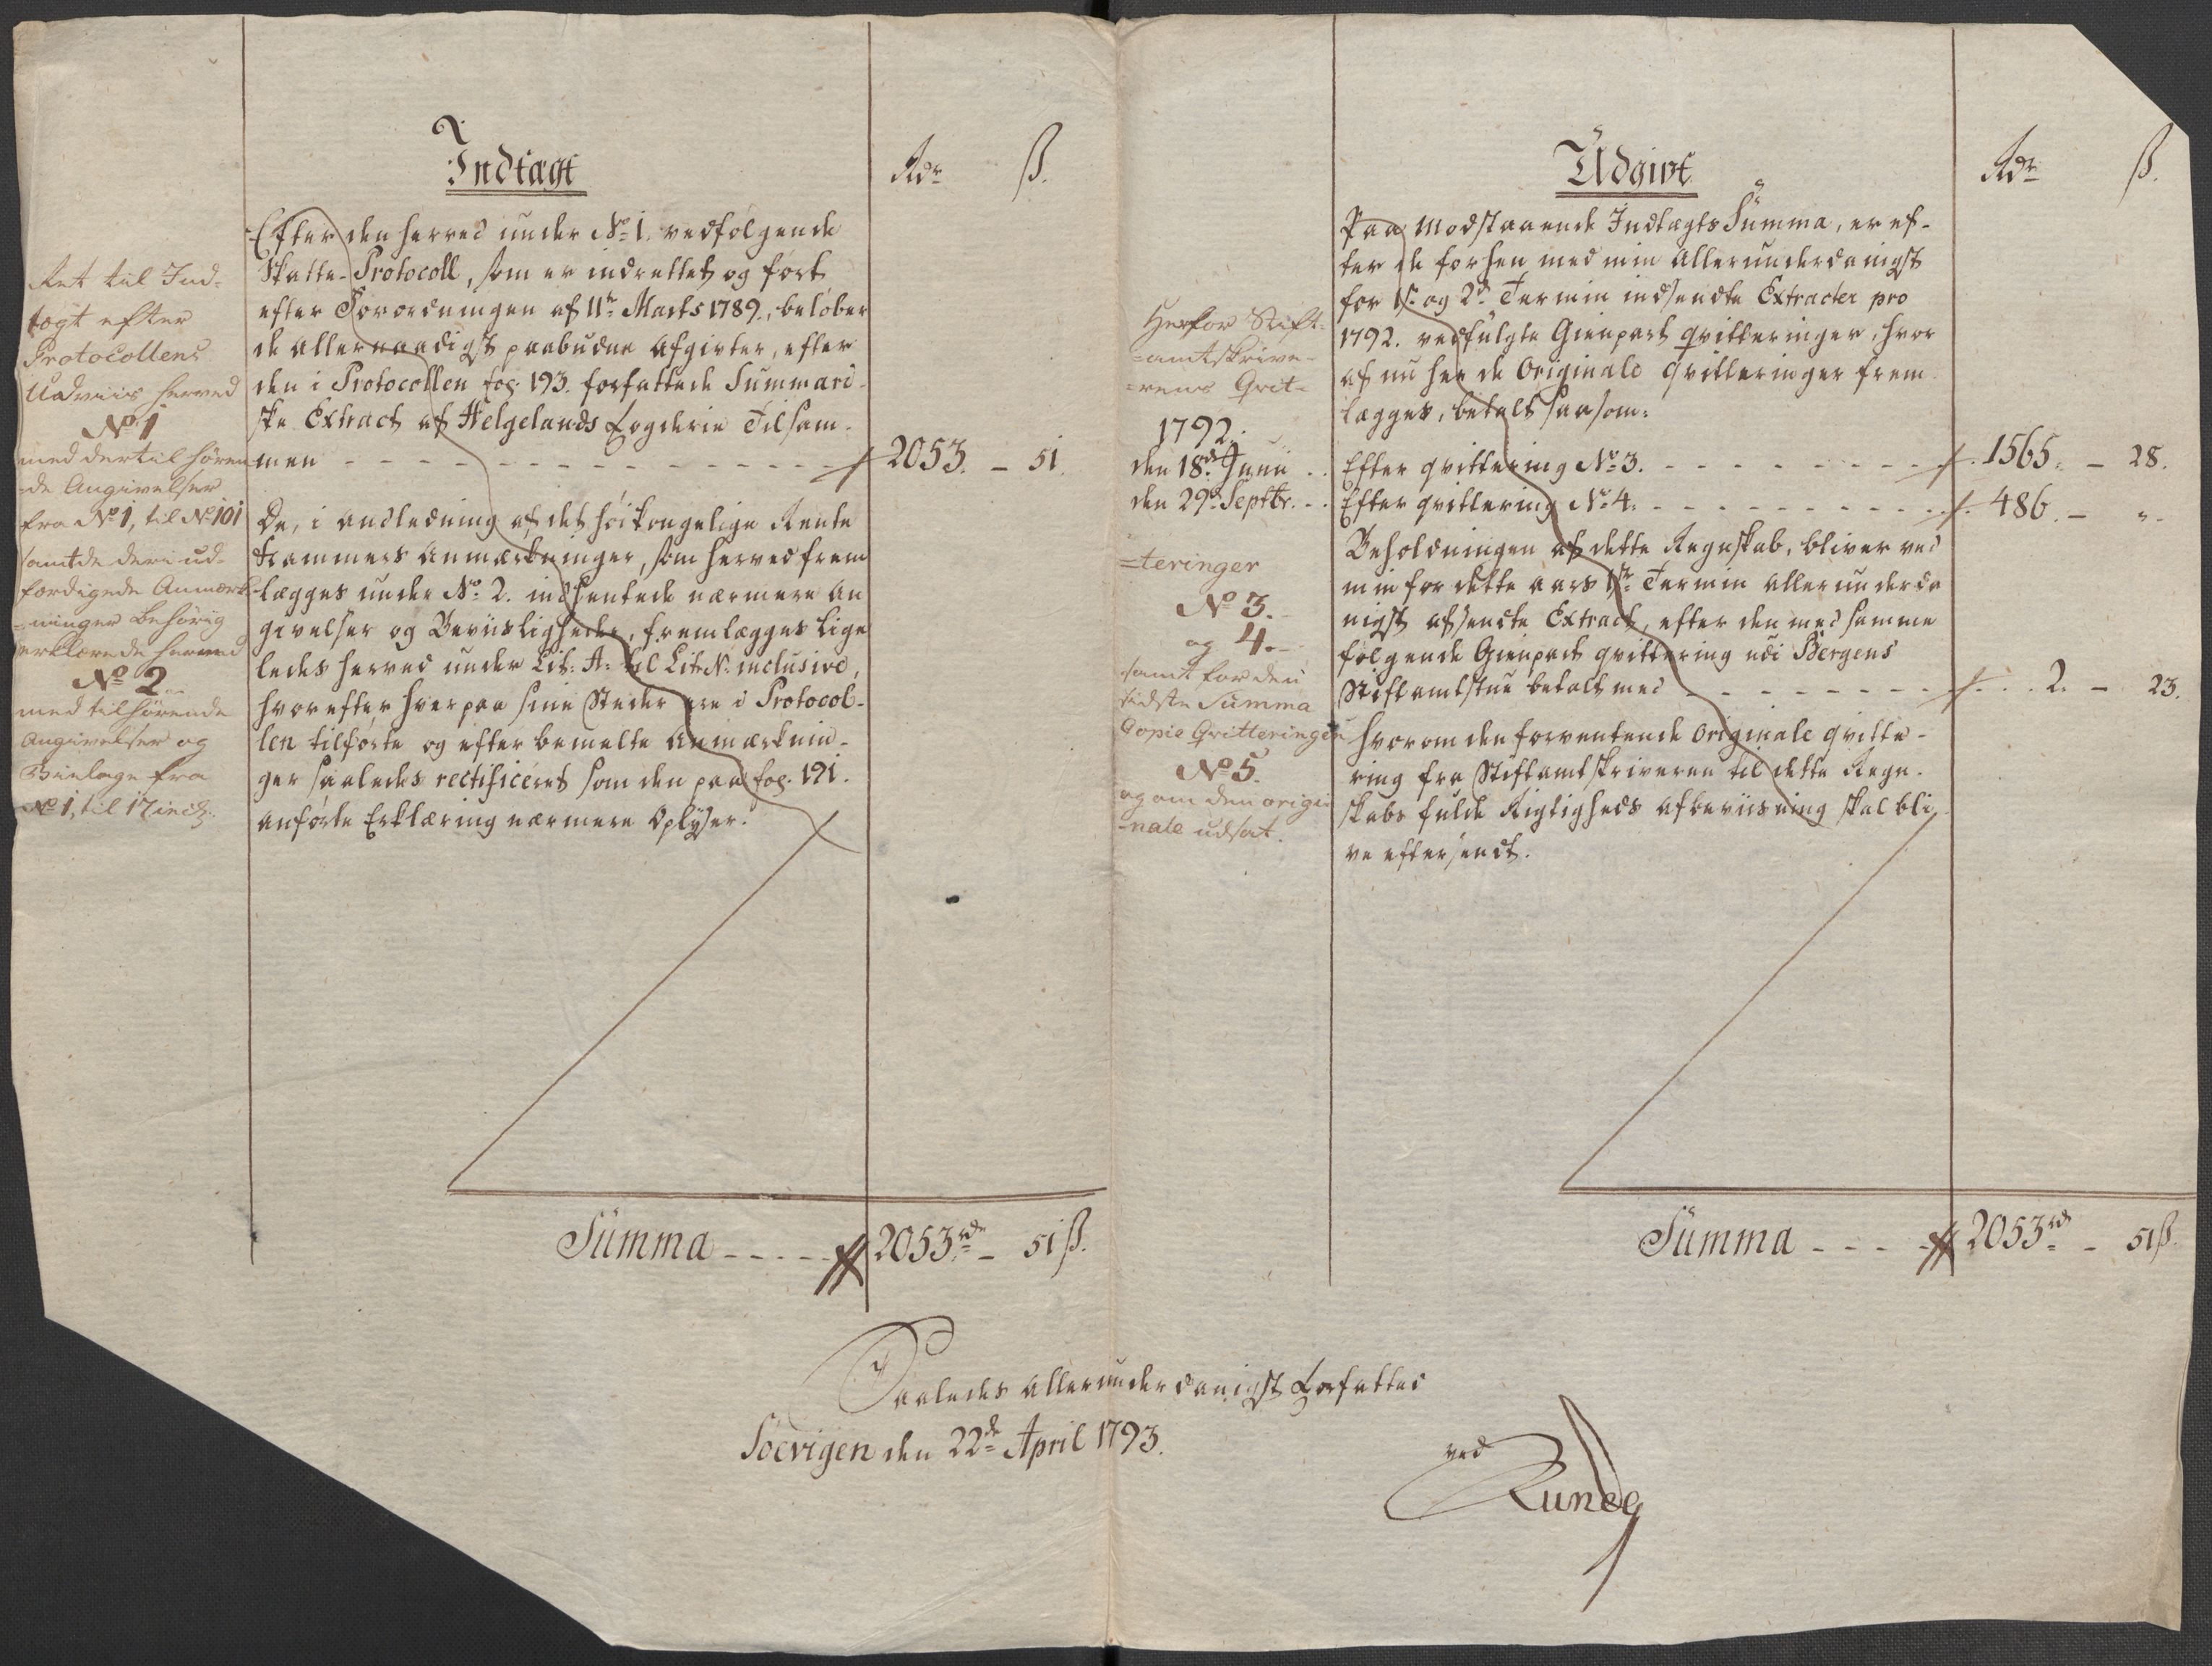 Indtægt
Rdr ß.
Efter den herved under No 1. vedfølgende
Skatte-Protocoll, som er indrettet og ført
efter Forordningen af 11te Marts 1789., beløber
de allernaadigst paabudne Afgivter, efter
den i Protocollen fog. 193. forfattede Summari-
ske Extract af Helgelands Fogderie Tilsam-
men - - - - - 2053. - 51.
De, i andledning af det høikongelige Rente
Kammers Anmærkninger, som herved frem
lægges under No. 2. indhentede nærmere An
givelser og Beviisligheder, fremlægges lige
ledes herved under Lit: A. til Lit: N. inclusive,
hvorefter hver paa sine Steder ere i Protocol-
len tilførte og efter bemelte Anmærknin-
ger saaledes rectificeret som den paa fog. 191.
anførte Erklæring nærmere Oplyser.
Summa - - - - 2053rd - 51 ß.
Ret til Ind-
tægt efter
Protocollens
Udviis herved
No 1
med dertil høren
-de Angivelser
fra No 1, til No 101
samt de deri ud-
færdigede Anmærk-
-ninger behørig
erklærede herved
No 2
med tilhørende
Angivelser og
Bielage fra
No 1, til 17 incl.
Udgivt
Rdr ß.
Paa modstaaende Indtægts Summa, er ef-
ter de forhen med min allerunderdanigst
for 1ste og 2den Termin indsendte Extracter pro
1792. vedfulgte Gienpart qvitteringer, hvor
af nu her de Originale qvitteringer frem
lægges, betalt saasom:
1792.
den 18de Junii - - Efter qvittering No 3. - - - - 1565. - 28.
den 29de Septbr. - - Efter qvittering No 4. - - - - 486. - "-
Beholdningen af dette Regnskab, bliver ved
min for dette aars 1ste Termin allerunderda
nigst afsendte Extract, efter den med samme
følgende Gienpart qvittering udi Bergens
Stiftamtstue betalt med - - - - 2. - 23.
hvorom den forventende originale qvitte-
ring fra Stiftamtskriveren til dette Regn-
skabs fulde Rigtigheds afbeviisning skal bli
ve eftersendt.
Summa - - - - 2053rd - 51 ß
Herfor Stift-
=amtskrive-
-rens Qvit-
=teringer
No 3.
og 4.
samt for den
sidste Summa
Copie Qvitteringen
No 5.
og om den origi-
-nale udsat.
Saaledes allerunderdanigst Forfattet
Søevigen den 22de April 1793.
ved
Runde